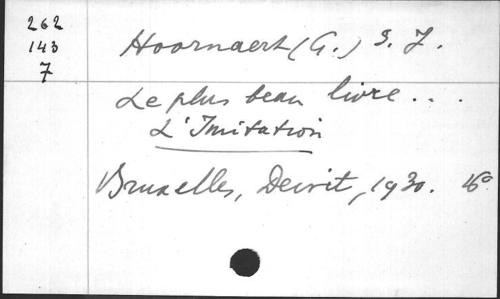 262
143
7
Hoornaert (G.) S. J.
Le plus beau livre...
L'Imitation
Bruxelles, Dewit, 1930. 16°